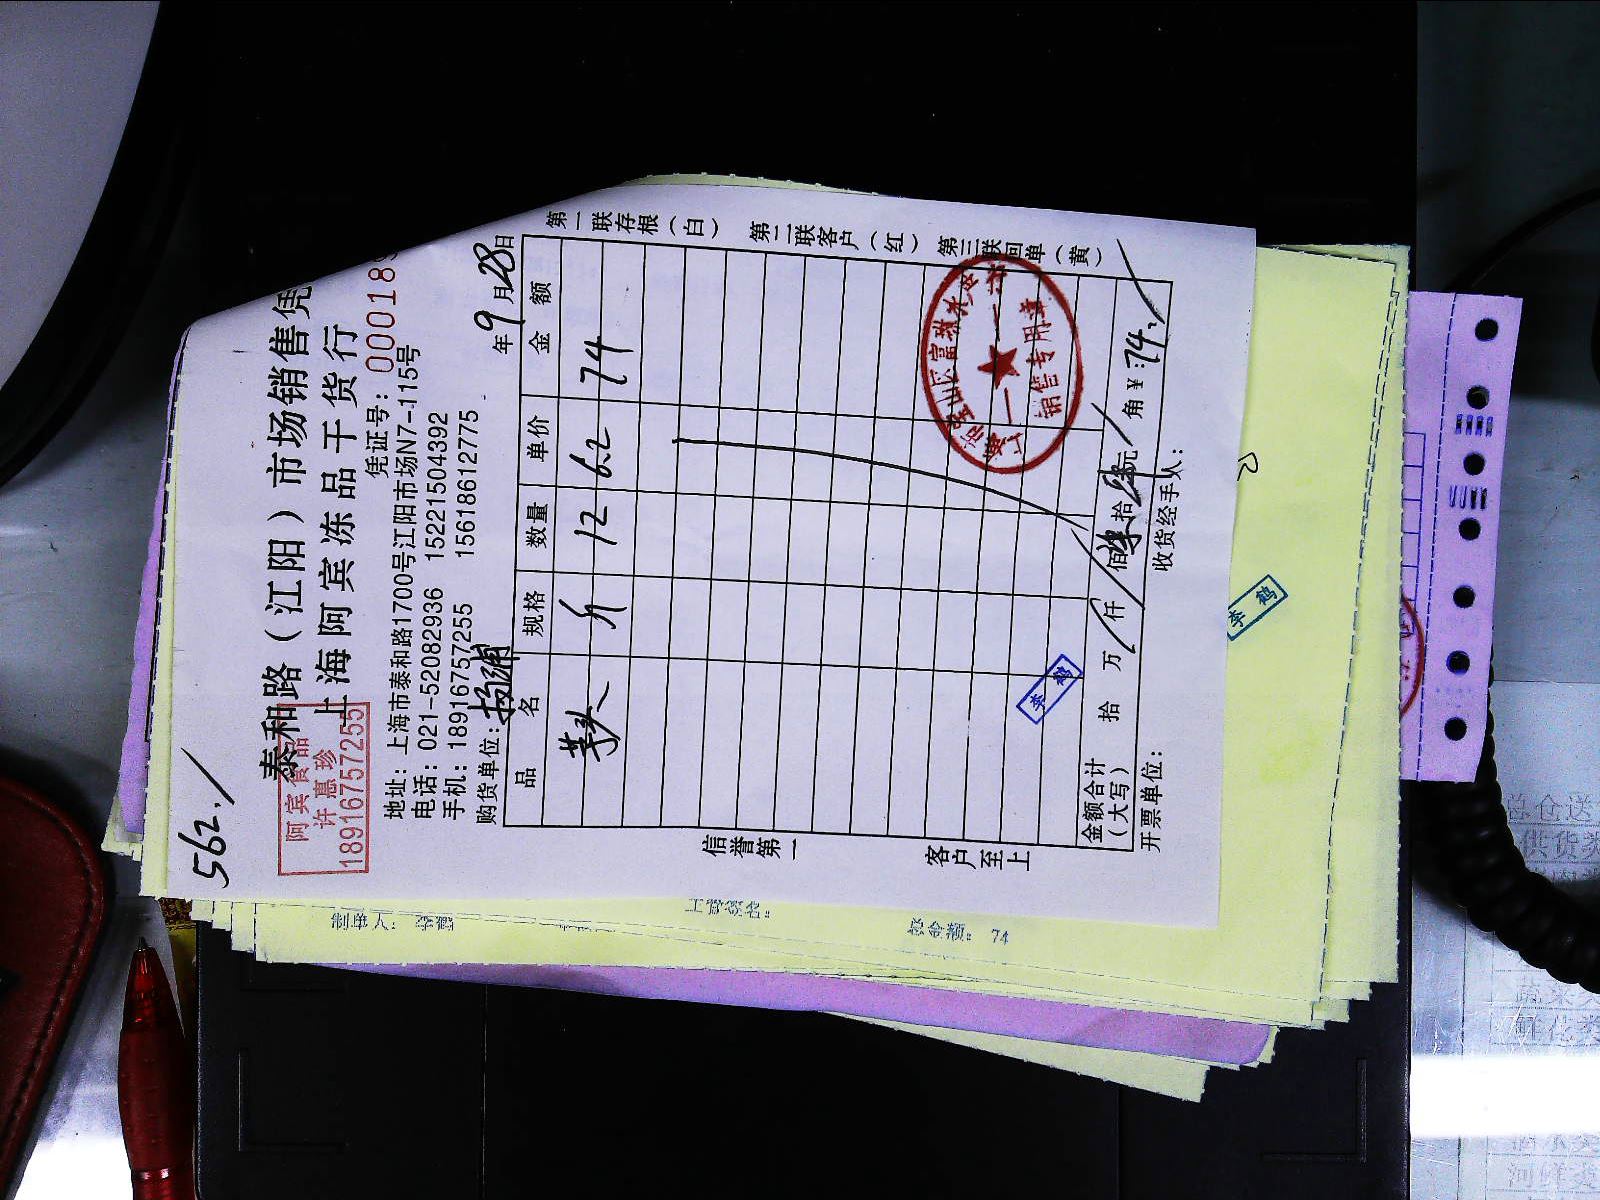 562./
泰和路（江阳）市场销售凭
上海阿宾冻品干货行
阿宾食品
许惠珍
18916757255
凭证号：000018
地址：上海市泰和路1700号江阳市场N7-115号
电话：021-52082936 15221504392
手机：18916757255 15618612775
购货单位：杨浦 年9月28日
品名 规格 数量 单价 金额
芋头 斤 12 6.2 74
第一联存根（白） 第二联客户（红） 第三联回单（黄）
信誉第一 客户至上
销售专用章
李鹤
金额合计（大写） 拾 万 仟 佰 柒 拾 肆 元 角 ¥：74.
开票单位： 收货经手人：
李鹤
制单人：
总金额：74
总仓送
供货类
蔬菜类
鲜花类
河鲜类